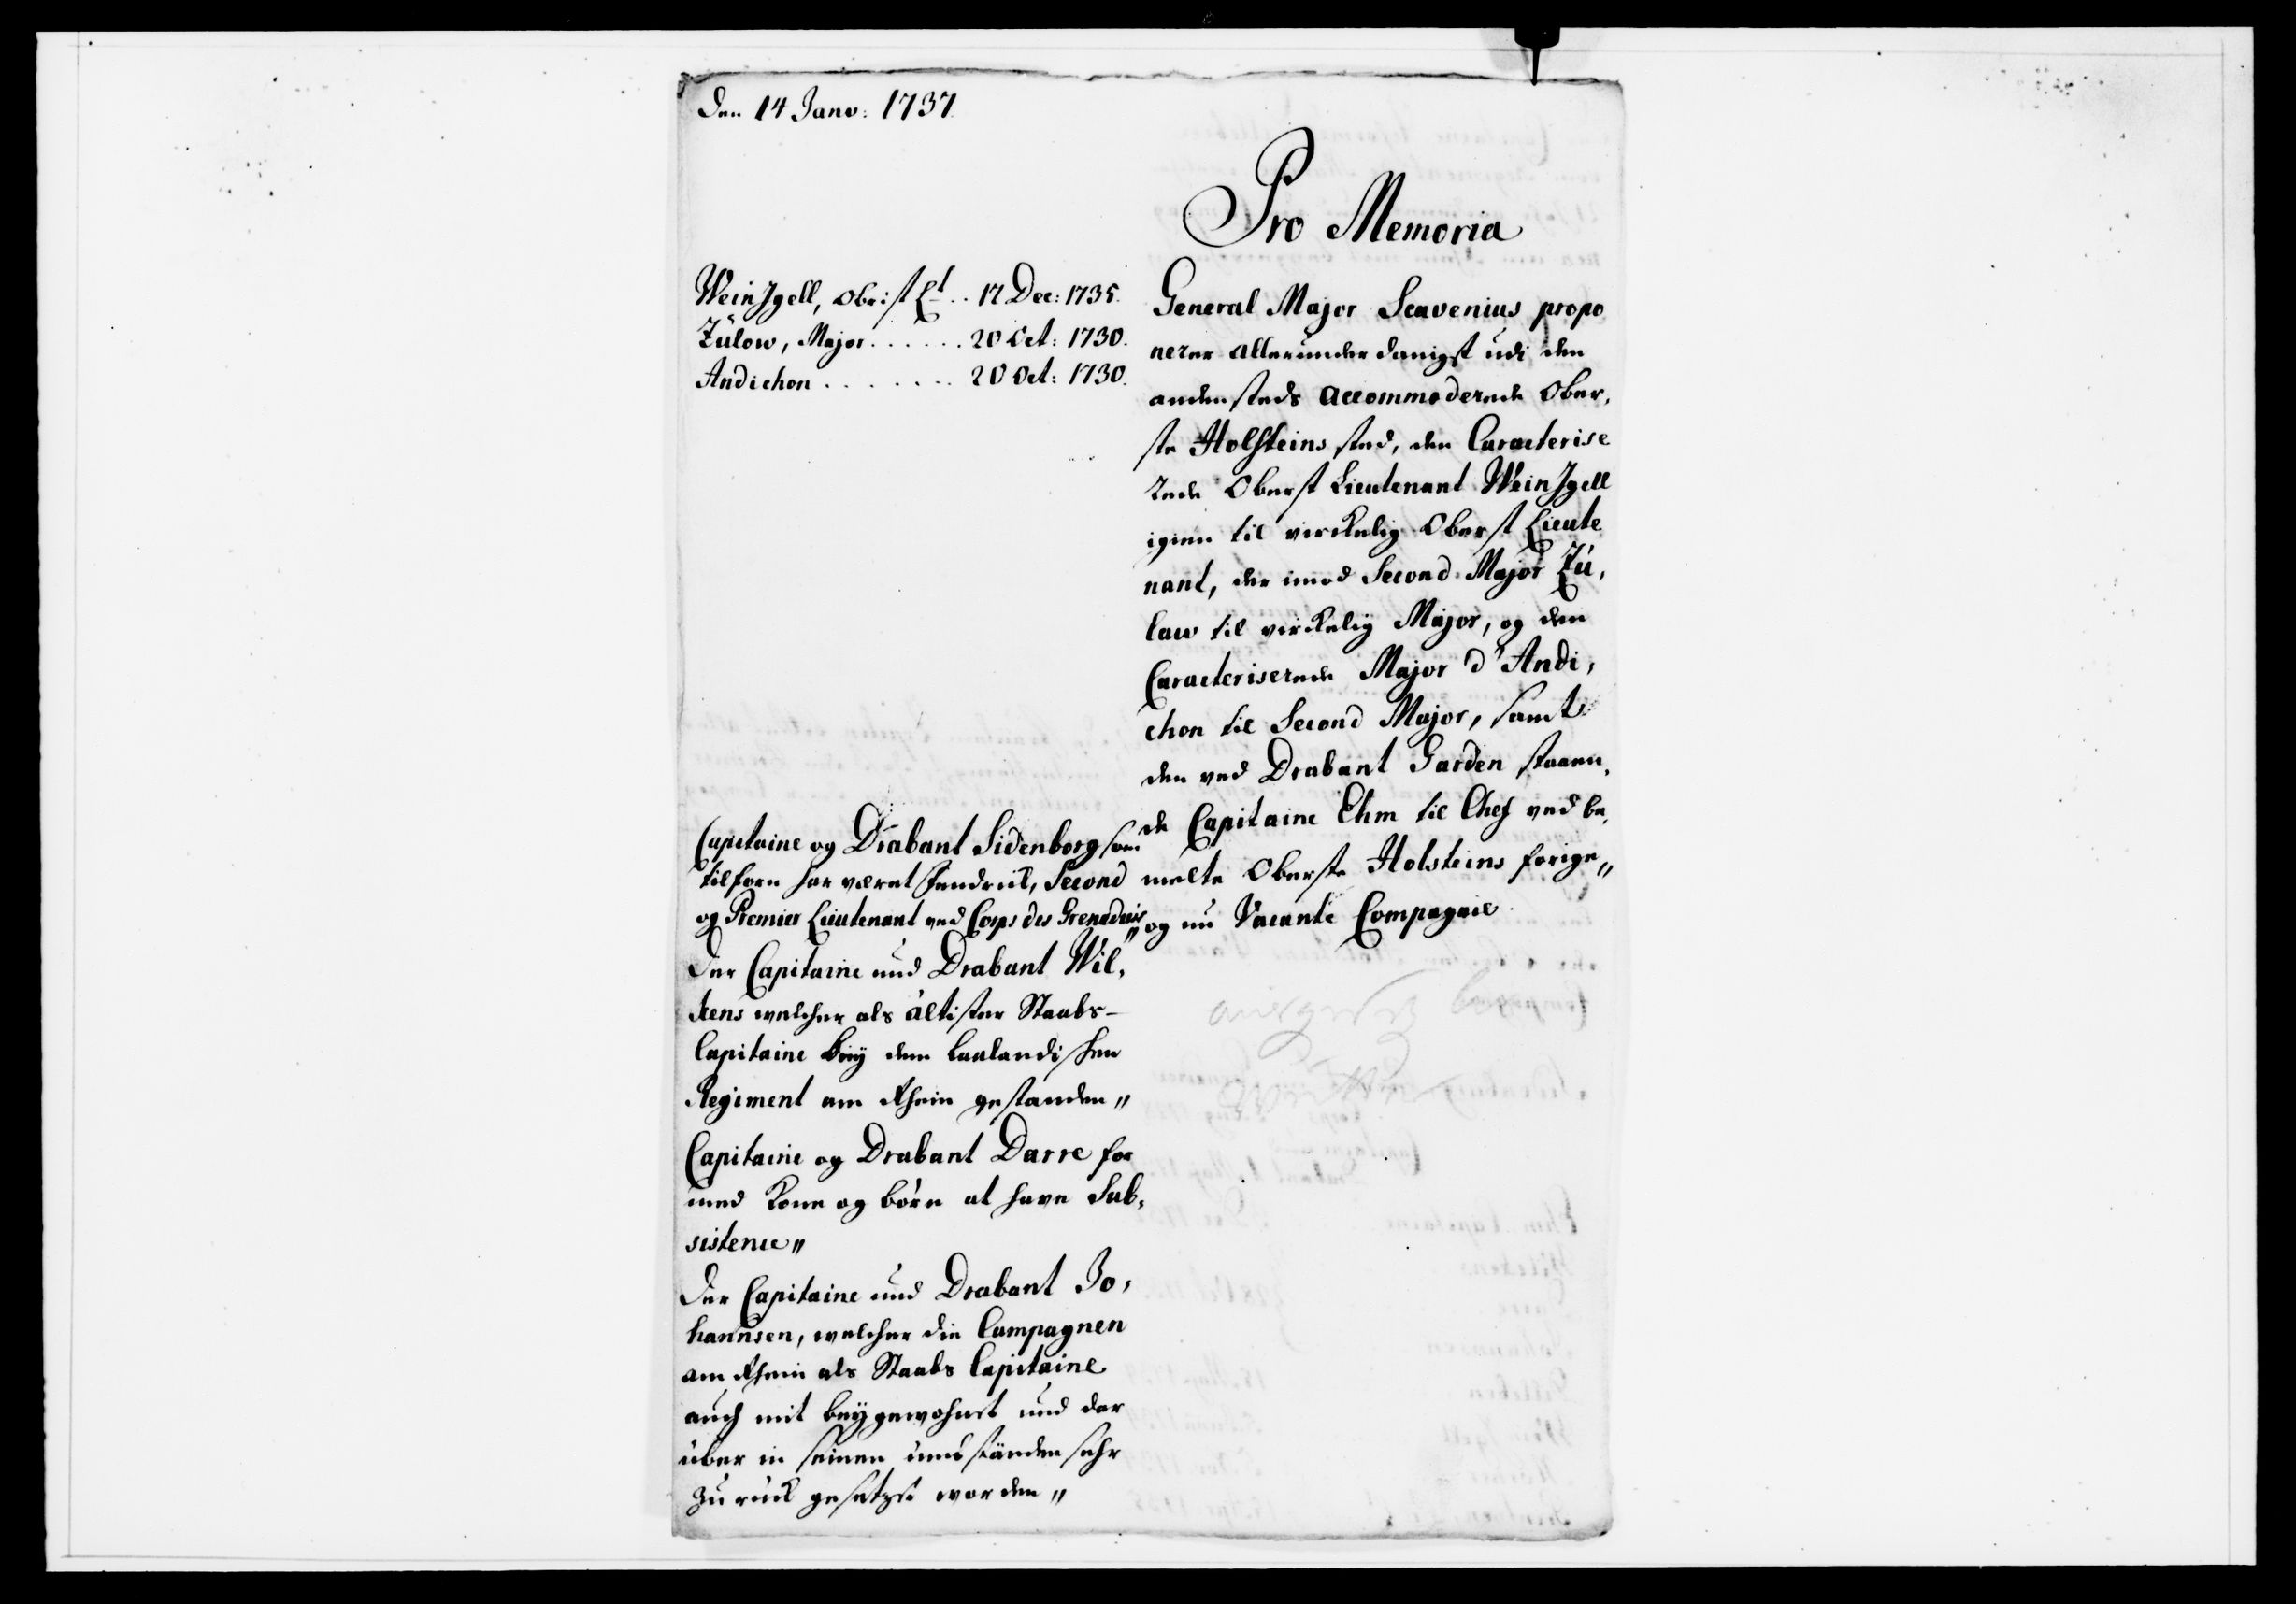 Den 14 Janv: 1737.
Pro Memoria
WeinIgell, Obrist Lt. .. 17 Dec: 1735.
Zülow, Major ...... 20 Oct: 1730.
Andichon ........ 20 Oct: 1730.
General Major Scavenius propo
nerer allerunderdanigst udi den
andensteds accommoderede Ober,
ste Holsteins sted, den Caracterise
rede Oberst Lieutenant WeinIgell
igien til virkelig Oberst Lieute
nant, der imod Second Major Zü,
low til virkelig Major, og den
Caracteriserede Major d'Andi,
chon til Second Major, samt
den ved Drabant Garden staaen,
de Capitaine Ehm til Chef ved be,
melte Oberste Holsteins forige„
og nu Vacante Compagnie.
Capitaine og Drabant Sidenborg som
tilforn har været Fendrik, Second
og Premier Lieutenant ved Corps des Grenadiers„
Der Capitaine und Drabant Wil,
kens welcher als ältister Staabs-
Capitaine beÿ dem Laalandischen
Regiment am Rhein gestanden„
Capitaine og Drabant Darre for
med Kone og børn at have Sub,
sistence„
Der Capitaine und Drabant Jo,
hannsen, welcher die Campagnen
am Rhein als Staabs Capitaine
auch mit beÿgewohnt und dar
über in seinen umständen sehr
zurück gesetzt worden„